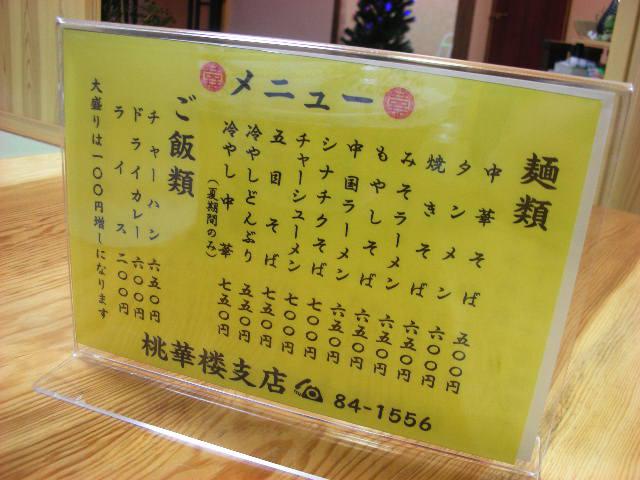 メニュー
麺類
中華そば 五〇〇円
タンメン 六〇〇円
焼きそば 六〇〇円
みそラーメン 六〇〇円
もやしそば 六五〇円
中国ラーメン 六五〇円
シナチクそば 七〇〇円
チャーシューメン 七〇〇円
五目そば 七五〇円
冷やしどんぶり 五五〇円
冷やし中華 七五〇円
(夏期間のみ)
ご飯類
チャーハン 六五〇円
ドライカレー 六〇〇円
ライス 二〇〇円
大盛りは一〇〇円増しになります
桃華楼支店 84-1556